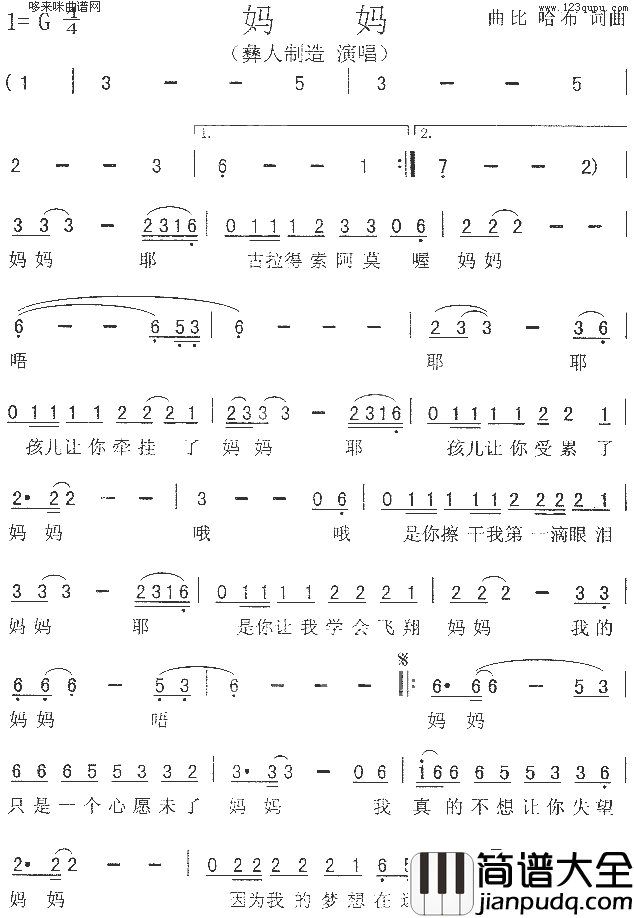 哆来咪曲谱网
www.123qupu.com
妈 妈
1= G 4/4
曲比 哈布 词曲
（彝人制造 演唱）
(1 - - 3 | 3 - - 5 | 3 - - 5 |
1. 2.
2 - - 3 | 6 - - 1 :| 7 - - 2)
3 3 3 - 2316 | 0 11 12 33 06 | 2 2 2 -
妈妈 耶 古拉得索阿莫 喔 妈妈
6 - - 6 53 | 6 - - | 2 3 3 - 3 6
唔 耶 耶
0 11 11 22 21 | 2333 - 2316 | 0 111 12 2 1
孩儿让你牵挂 了 妈妈 耶 孩儿让你受累了
2· 22 - - | 3 - - 06 | 0 11 112 222 21
妈妈 哦 哦 是你擦干我第一滴眼泪
3 3 3 - 2316 | 0 11 11 22 21 | 2 2 2 - 33
妈妈 耶 是你让我学会飞翔 妈妈 我的
6 6 6 - 5 3 | 6 - - - |: 6· 66 - 53
妈妈 唔 妈妈
6 6 65 53 32 | 3· 33 - 06 | 166 65 53 36
只是一个心愿未了 妈妈 我 真的不想让你失望
2· 22 - - | 0 22 22 21 65
妈妈 因为我的梦想在
简谱大全
jianpudq.com